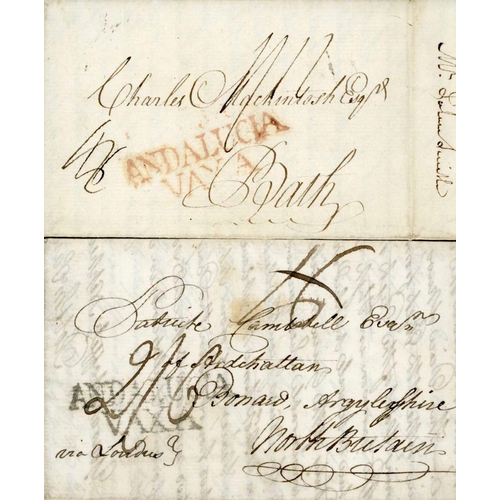 Charles Mackintosh Esqr
ANDALUCIA
VAXA
Bath
Mr. John Smith
16
Patrick Campbell Esqr
of Ardchattan
ANDALUCIA
VAXA
Bonard, Argyleshire
via London
North Britain